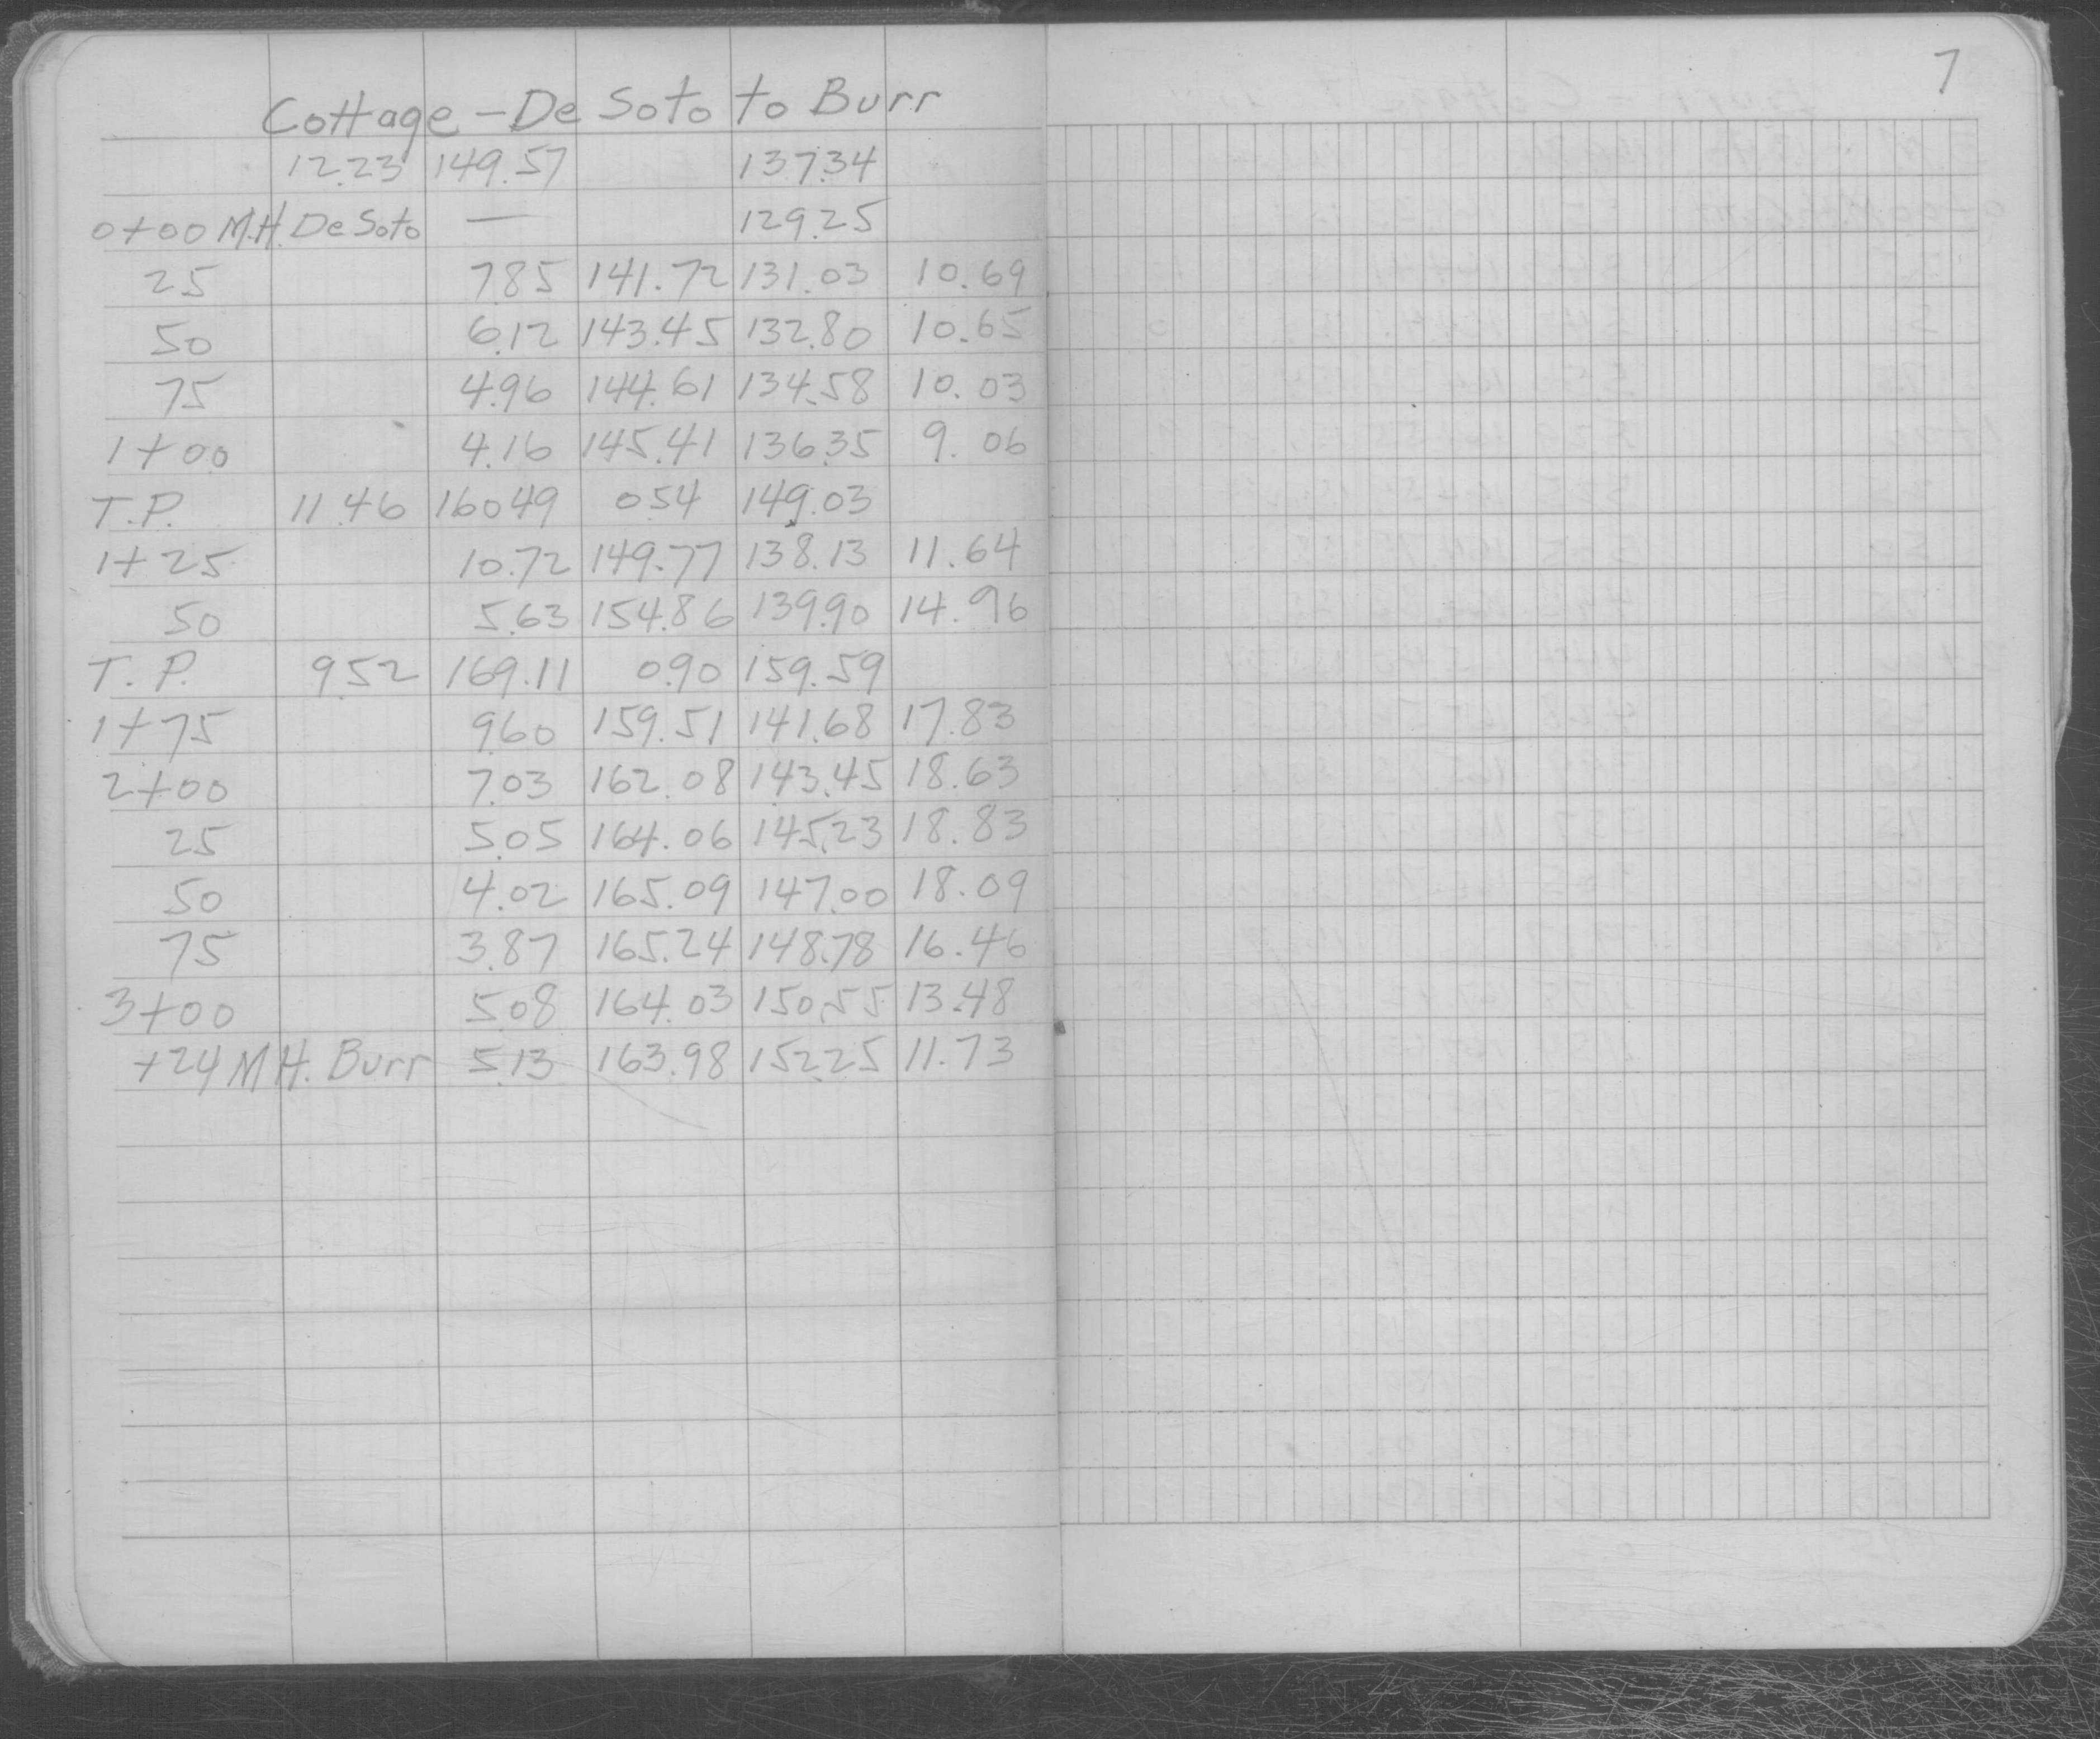 7
Cottage - De Soto to Burr
12.23 149.57 137.34
0+00 M.H. De Soto — 129.25
25 7.85 141.72 131.03 10.69
50 6.12 143.45 132.80 10.65
75 4.96 144.61 134.58 10.03
1+00 4.16 145.41 136.35 9.06
T.P. 11.46 160.49 0.54 149.03
1+25 10.72 149.77 138.13 11.64
50 5.63 154.86 139.90 14.96
T.P. 9.52 169.11 0.90 159.59
1+75 9.60 159.51 141.68 17.83
2+00 7.03 162.08 143.45 18.63
25 5.05 164.06 145.23 18.83
50 4.02 165.09 147.00 18.09
75 3.87 165.24 148.78 16.46
3+00 5.08 164.03 150.55 13.48
+24 M.H. Burr 5.13 163.98 152.25 11.73